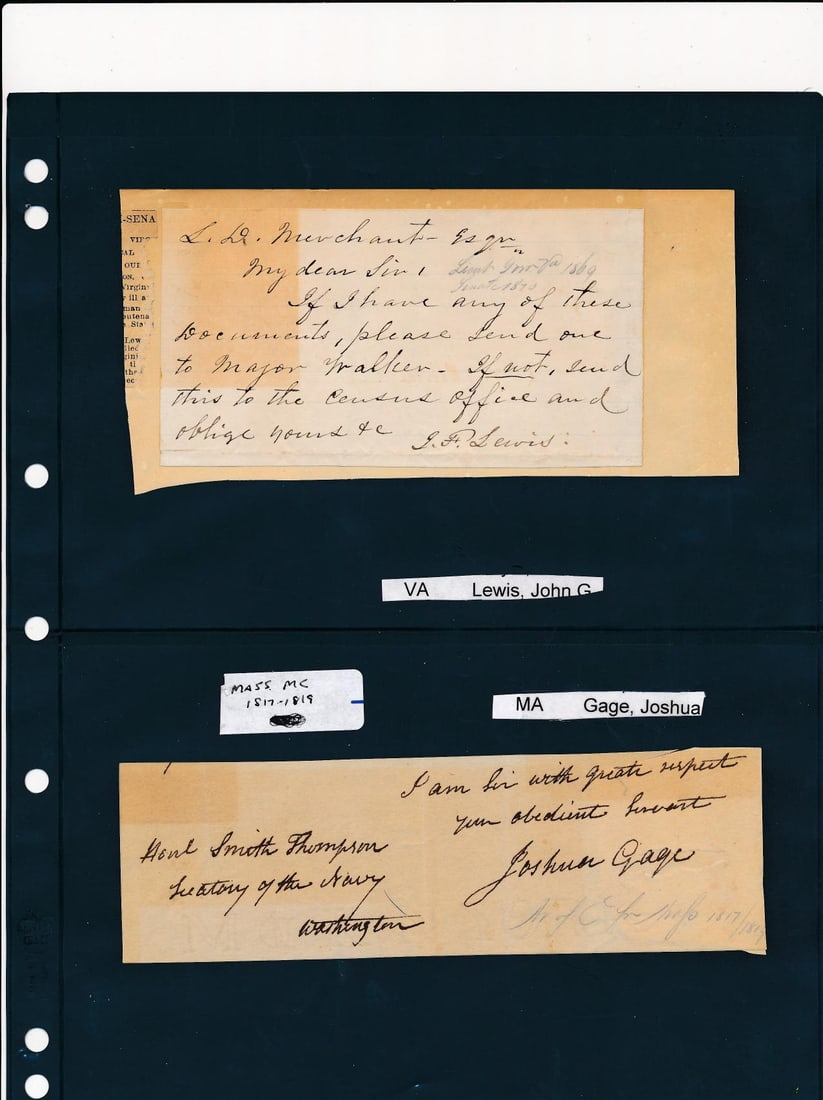 -SENA
OUI
ill a
man
eutena
Lew
L. D. Merchant - Esqr
My dear Sir,
Lieut Gov Va 1869
Senate 1870
If I have any of these
Documents, please send one
to Major Walker - If not, send
this to the census office and
oblige yours &c
J. F. Lewis.
VA Lewis, John G
MASS MC
1817-1819
MA Gage, Joshua
I am Sir with great respect
your obedient Servant
Joshua Gage
Honl Smith Thompson
Secatory of the Navy
Washington
M of C for Mass 1817/1819